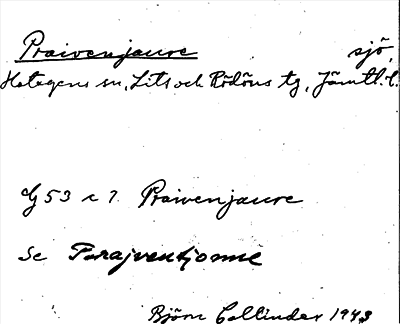 Praivenjaure sjö,
Hotagens sn, Lits och Rödöns tg, Jämtl. l.
G 53 c 7. Praivenjaure
Se Parajventjomme
Björn Collinder 1943